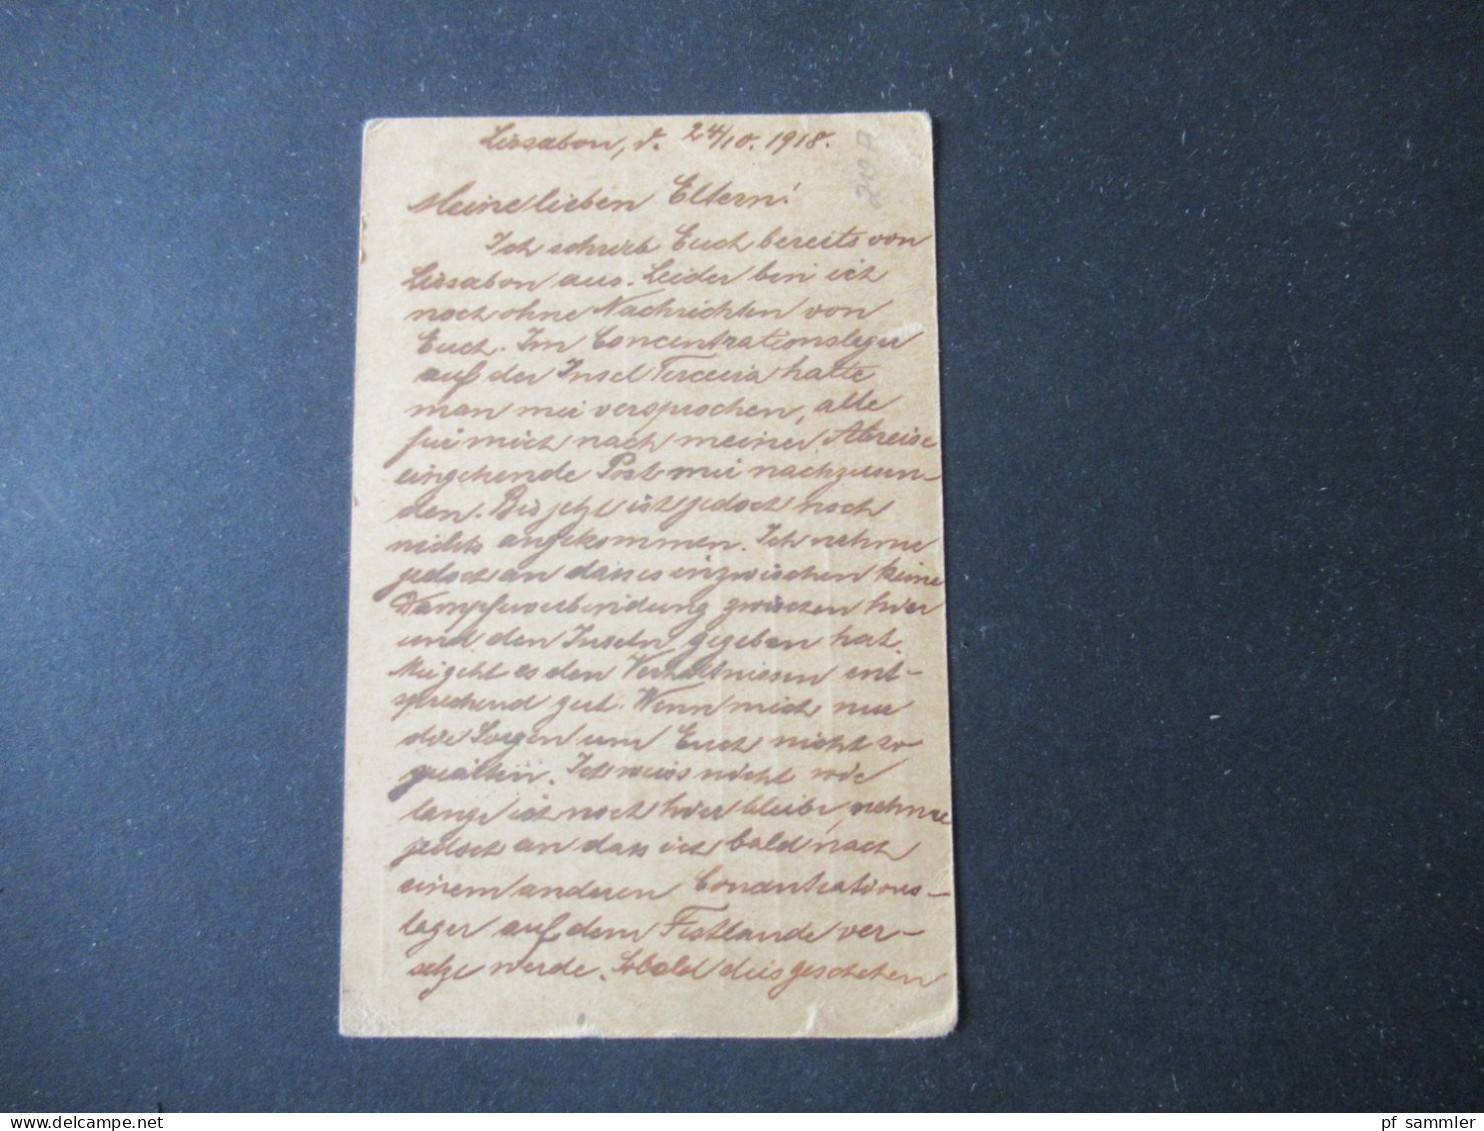 Lissabon, d. 24/10. 1918.
219 A
Meine lieben Eltern!
Ich schrieb Euch bereits von
Lissabon aus. Leider bin ich
noch ohne Nachrichten von
Euch. Im Concentrationslager
auf der Insel Terceira hatte
man mir versprochen, alle
für mich nach meiner Abreise
eingehende Post mir nachzusen-
den. Bis jetzt ist jedoch noch
nichts angekommen. Ich nehme
jedoch an dass es inzwischen keine
Dampferverbindung zwischen hier
und den Inseln gegeben hat.
Mir geht es den Verhältnissen ent-
sprechend gut. Wenn mich nur
die Sorgen um Euch nicht so
quälten. Ich weiss nicht wie
lange ich noch hier bleibe, nehme
jedoch an dass ich bald nach
einem anderen Concentrations-
lager auf dem Festlande ver-
setzt werde. Sobald dies geschehen
delcampe.net
pf_sammler